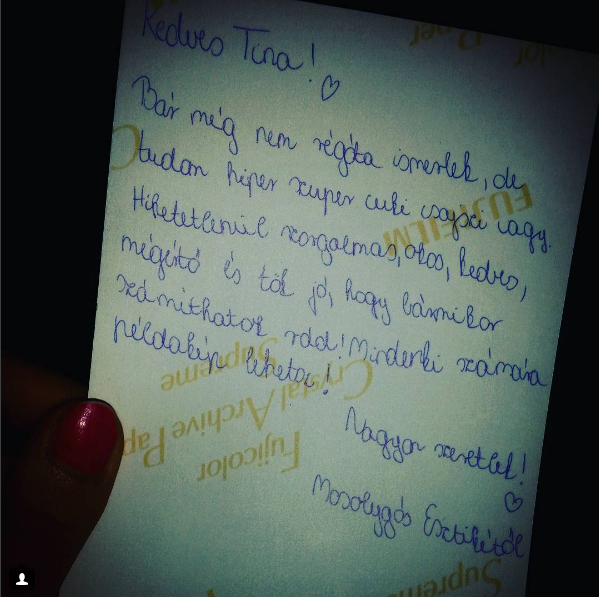 Kedves Tina!
♡
Bár még nem régóta ismerlek, de
tudom hiper szuper cuki csajszi vagy.
Hihetetlenül szorgalmas, okos, kedves,
mégértő és tök jó, hogy bármikor
számíthatok rád! Mindenki számára
példakép lehetsz!
Nagyon szeretlek!
♡
Mosolygós Esztikétől
Fujicolor
Crystal Archive Paper
Supreme
FUJIFILM
Fujicolor
Paper
Supreme